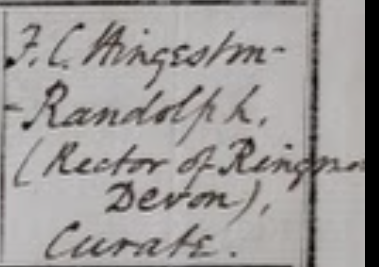 F. C. Hingeston-
-Randolph,
(Rector of
Devon),
Curate.